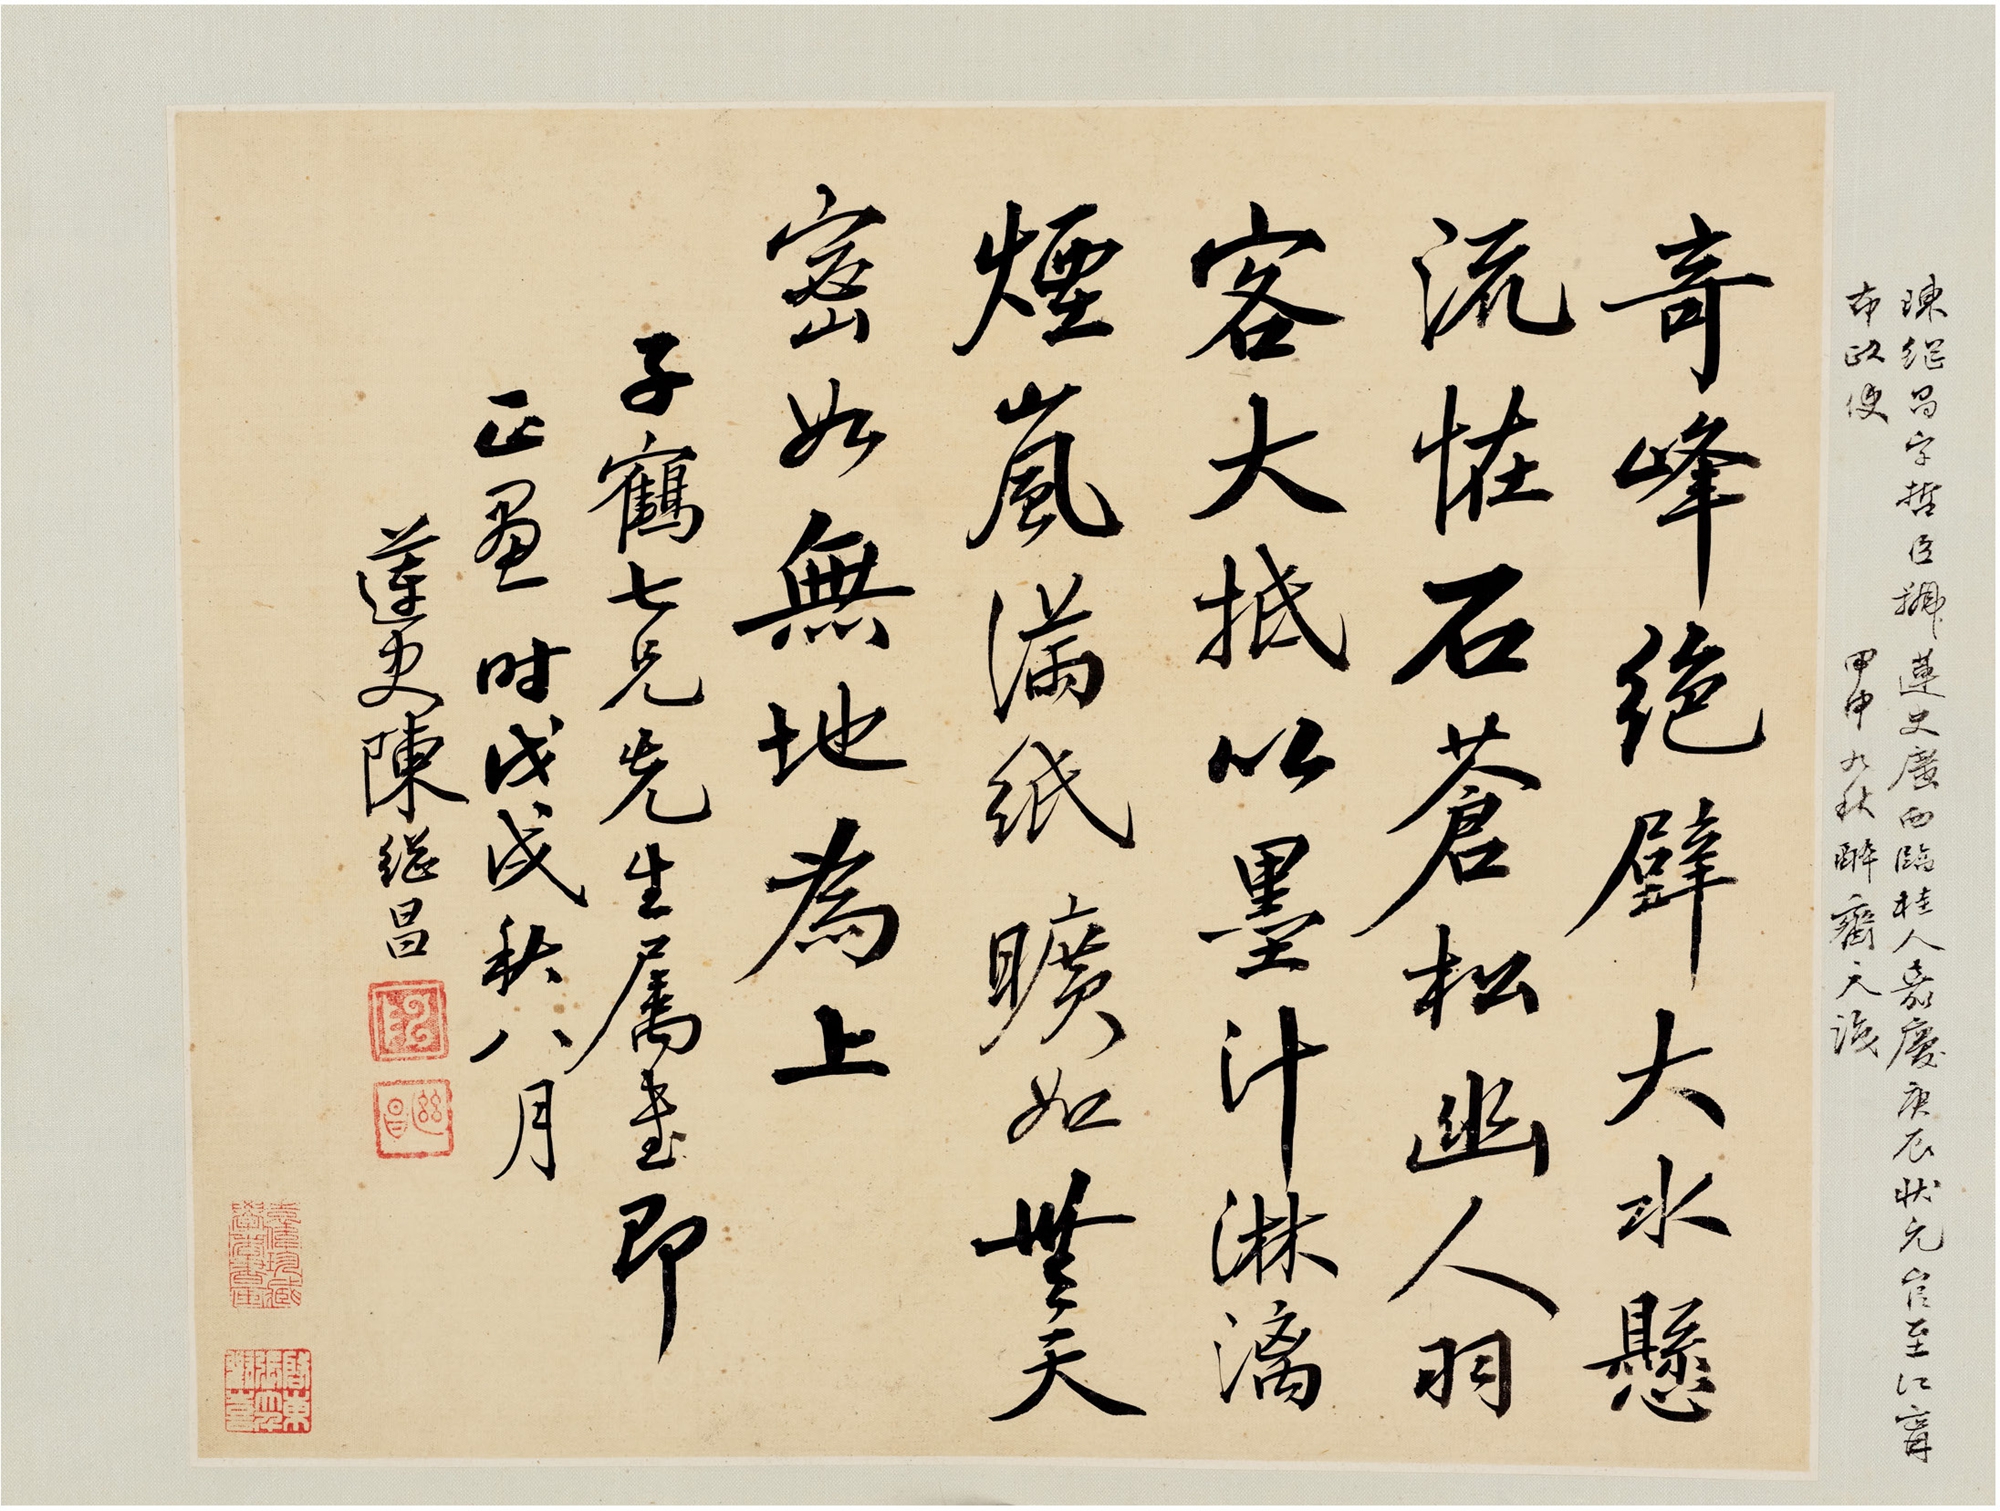 陳繼昌字哲臣號蓮史廣西臨桂人嘉慶庚辰狀元官至江甯
布政使 甲申九秋醉齋天識
奇峰絕壁大水懸
流怪石蒼松幽人羽
客大抵以墨汁淋漓
煙嵐滿紙曠如無天
密如無地為上
子鶴七兄先生屬書即
正畫 时戊戌秋八月
蓮史陳繼昌
繼昌